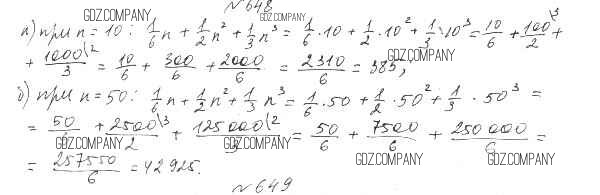 №648
GDZ.COMPANY GDZ.COMPANY
а) при n = 10: 1/6 n + 1/2 n² + 1/3 n³ = 1/6 · 10 + 1/2 · 10² + 1/3 · 10³ = 10/6 + 100\3/2 +
+ 1000\2/3 = 10/6 + 300/6 + 2000/6 = 2310/6 = 385;
GDZ.COMPANY
б) при n = 50: 1/6 n + 1/2 n² + 1/3 n³ = 1/6 · 50 + 1/2 · 50² + 1/3 · 50³ =
= 50/6 + 2500\3/2 + 125000\2/3 = 50/6 + 7500/6 + 250000/6 =
GDZ.COMPANY GDZ.COMPANY GDZ.COMPANY GDZ.COMPANY
= 257550/6 = 42925.
№649